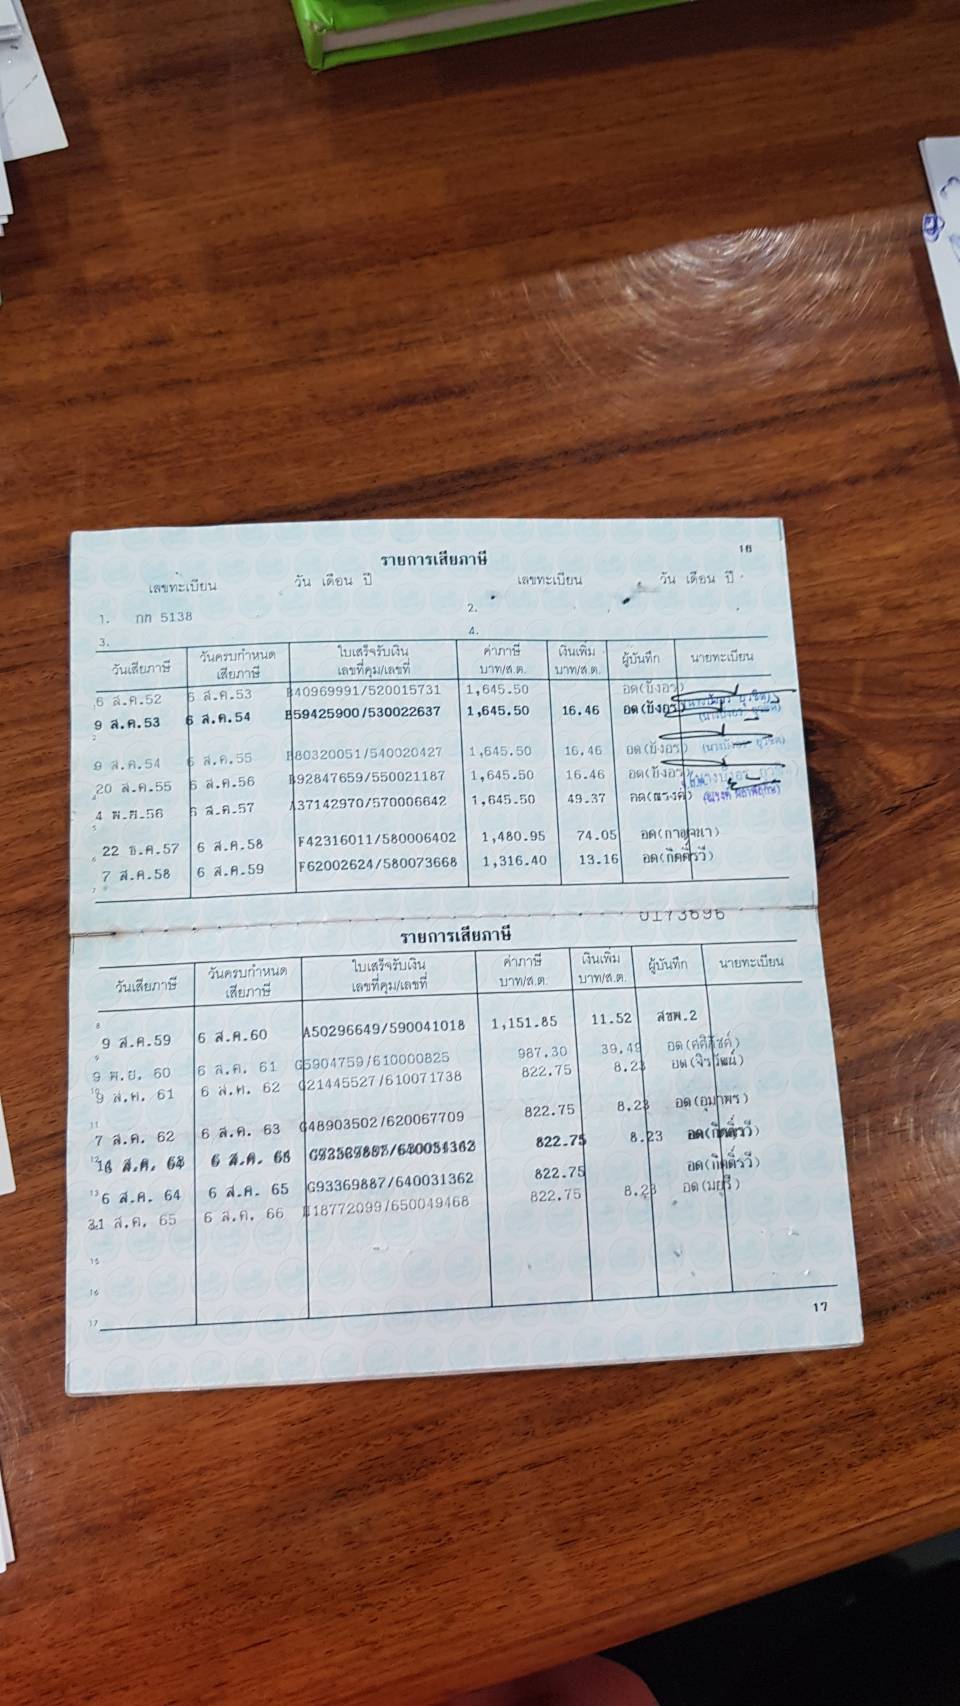 16
รายการเสียภาษี
เลขทะเบียน วัน เดือน ปี เลขทะเบียน วัน เดือน ปี
1. กท 5138 2.
3. 4.
วันเสียภาษี วันครบกำหนด ใบเสร็จรับเงิน ค่าภาษี เงินเพิ่ม ผู้บันทึก นายทะเบียน
เสียภาษี เลขที่คุม/เลขที่ บาท/ส.ต. บาท/ส.ต.
6 ส.ค.52 6 ส.ค.53 B40969991/520015731 1,645.50 อด(บังอร)
9 ส.ค.53 6 ส.ค.54 B59425900/530022637 1,645.50 16.46 อด(บังอร)
9 ส.ค.54 6 ส.ค.55 B80320051/540020427 1,645.50 16.46 อด(บังอร)
20 ส.ค.55 6 ส.ค.56 B92847659/550021187 1,645.50 16.46 อด(บังอร)
4 พ.ย.56 6 ส.ค.57 A37142970/570006642 1,645.50 49.37 อด(ณรงค์)
22 ธ.ค.57 6 ส.ค.58 F42316011/580006402 1,480.95 74.05 อด(กาญจนา)
7 ส.ค.58 6 ส.ค.59 F62002624/580073668 1,316.40 13.16 อด(กิตติ์รวี)
0173696
รายการเสียภาษี
วันเสียภาษี วันครบกำหนด ใบเสร็จรับเงิน ค่าภาษี เงินเพิ่ม ผู้บันทึก นายทะเบียน
เสียภาษี เลขที่คุม/เลขที่ บาท/ส.ต. บาท/ส.ต.
8
9 ส.ค.59 6 ส.ค.60 A50296649/590041018 1,151.85 11.52 สชพ.2
9
9 พ.ย. 60 6 ส.ค. 61 G5904759/610000825 987.30 39.49
10
9 ส.ค. 61 6 ส.ค. 62 G21445527/610071738 822.75 8.23 อด(จิรวัฒน์)
11
7 ส.ค. 62 6 ส.ค. 63 G48903502/620067709 822.75 8.23 อด(อุมาพร)
12
822.75 8.23 อด(กิตติ์รวี)
13
6 ส.ค. 64 6 ส.ค. 65 G93369887/640031362 822.75 อด(กิตติ์รวี)
31 ส.ค. 65 6 ส.ค. 66 H18772099/650049468 822.75 8.23 อด(มยุรี)
15
16
17
17